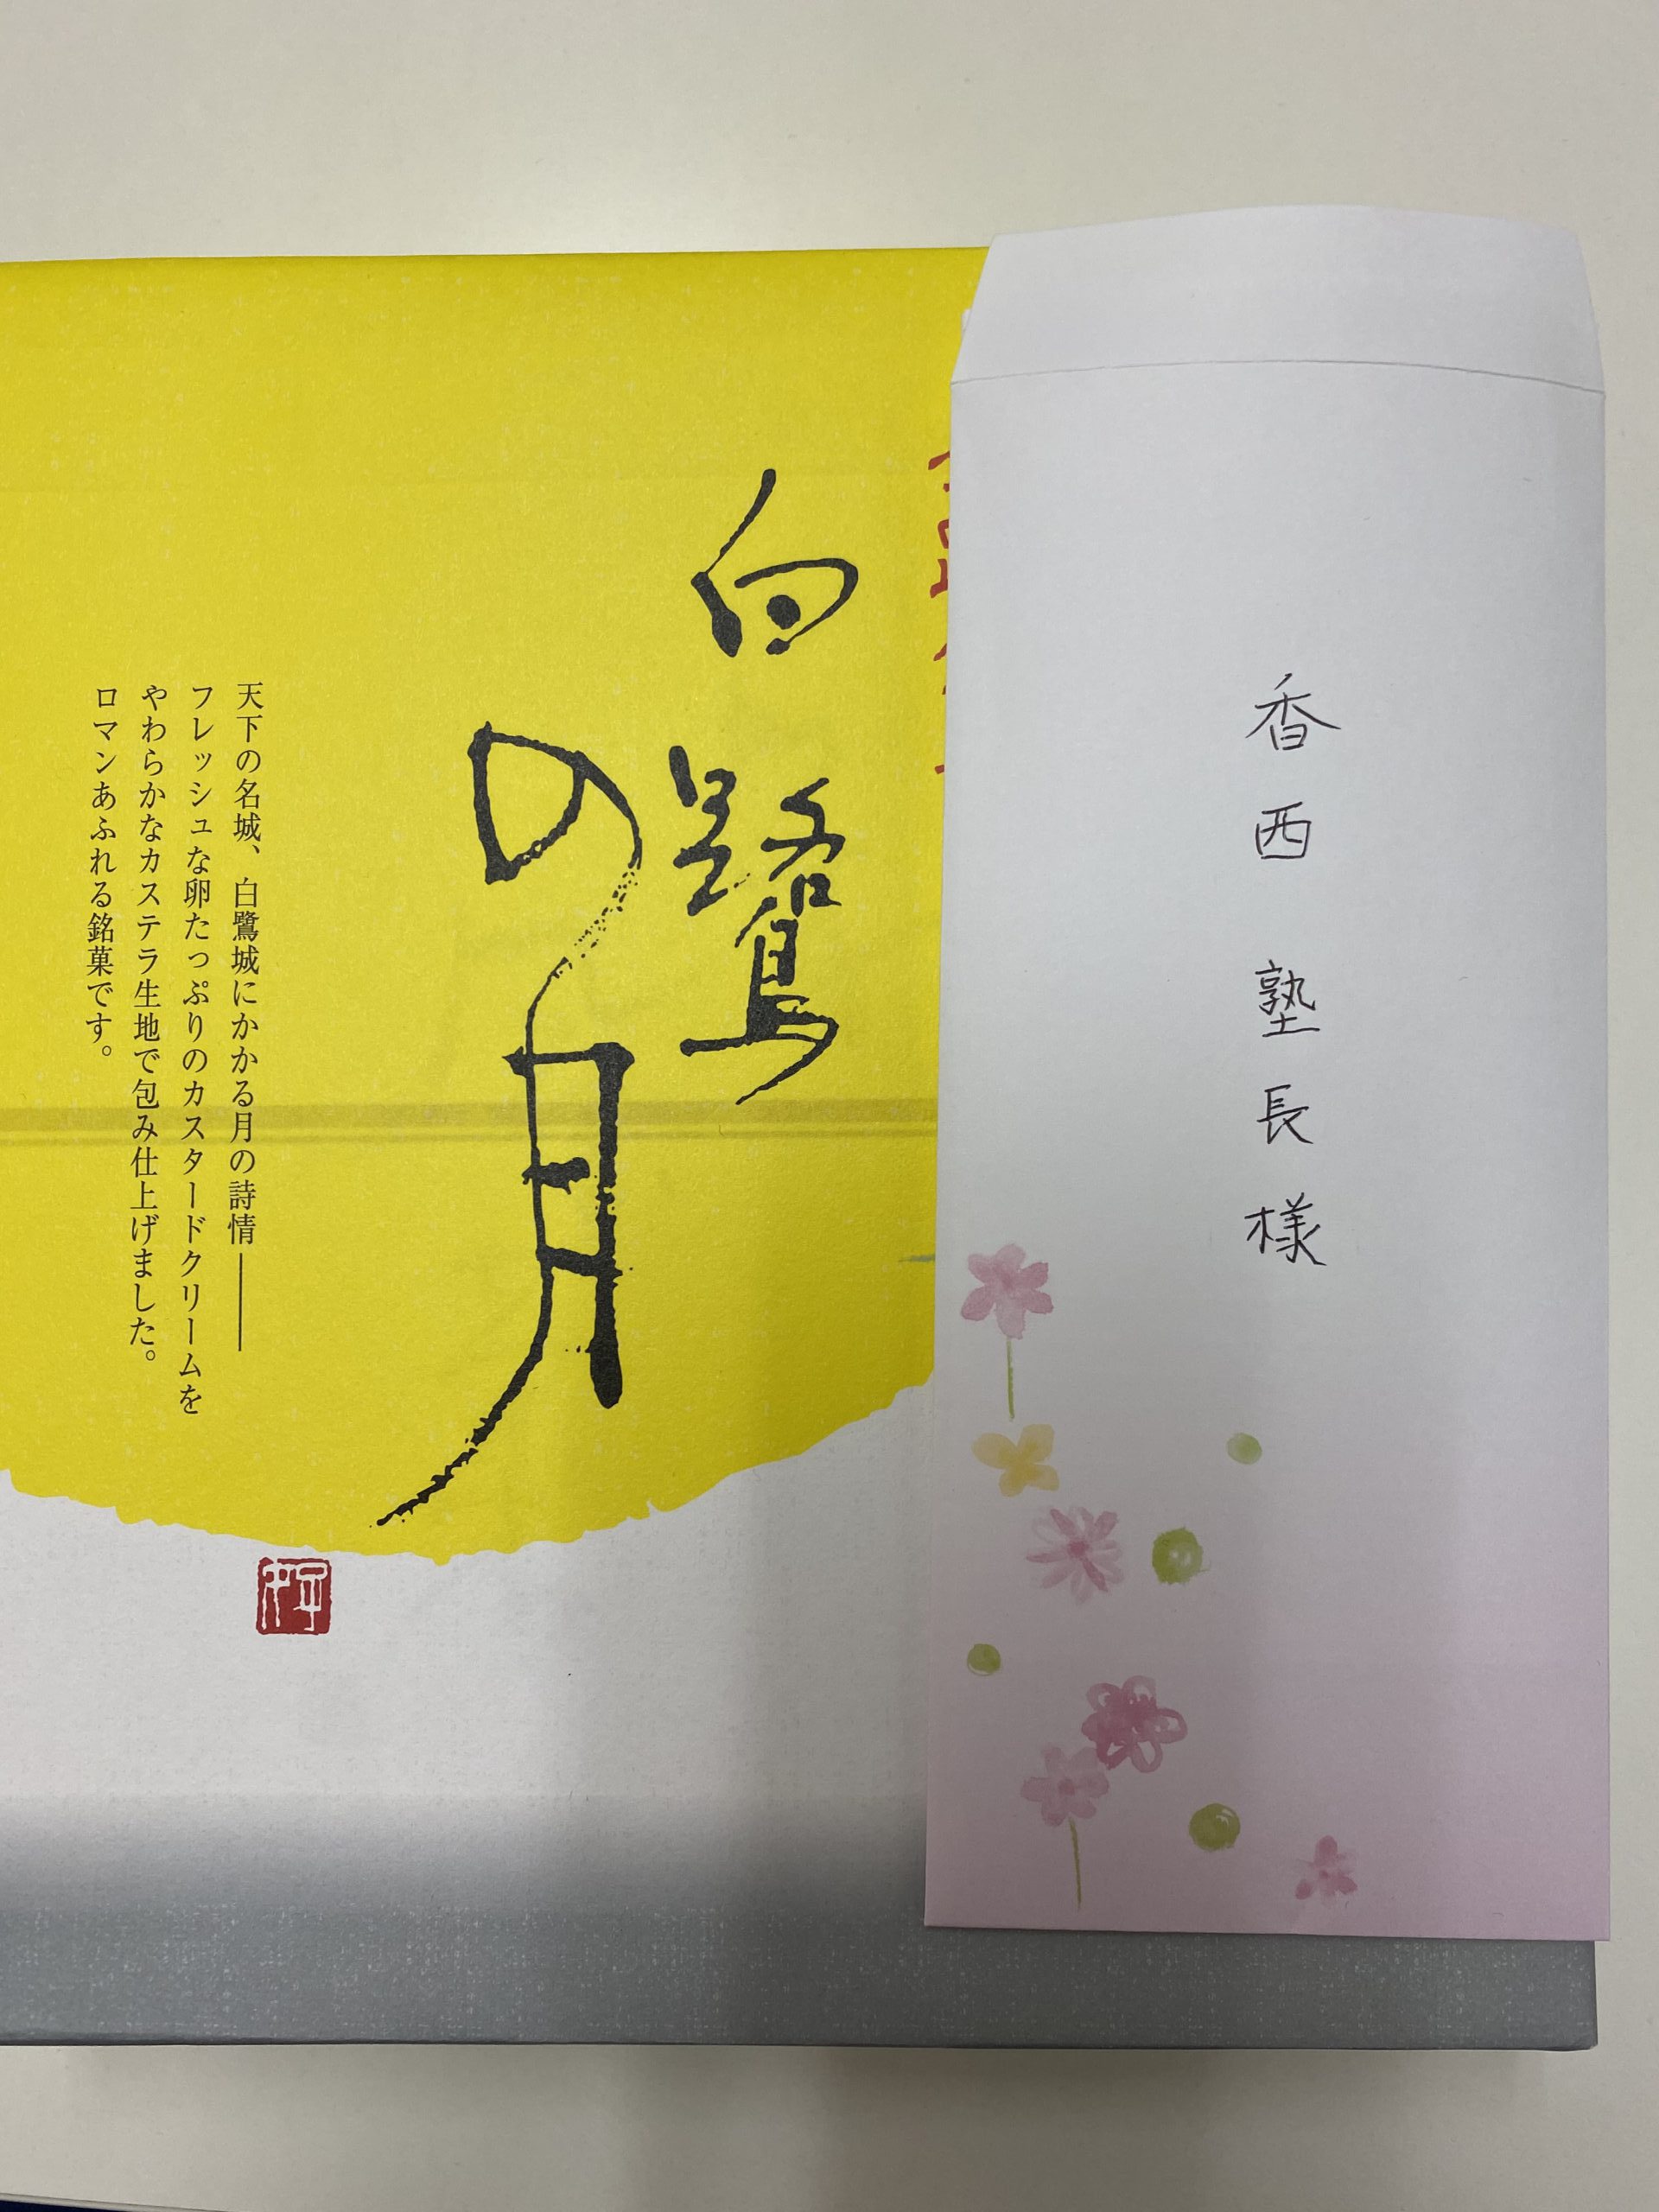 香西 塾長様
白鷺
の月
天下の名城、白鷺城にかかる月の詩情――
フレッシュな卵たっぷりのカスタードクリームを
やわらかなカステラ生地で包み仕上げました。
ロマンあふれる銘菓です。